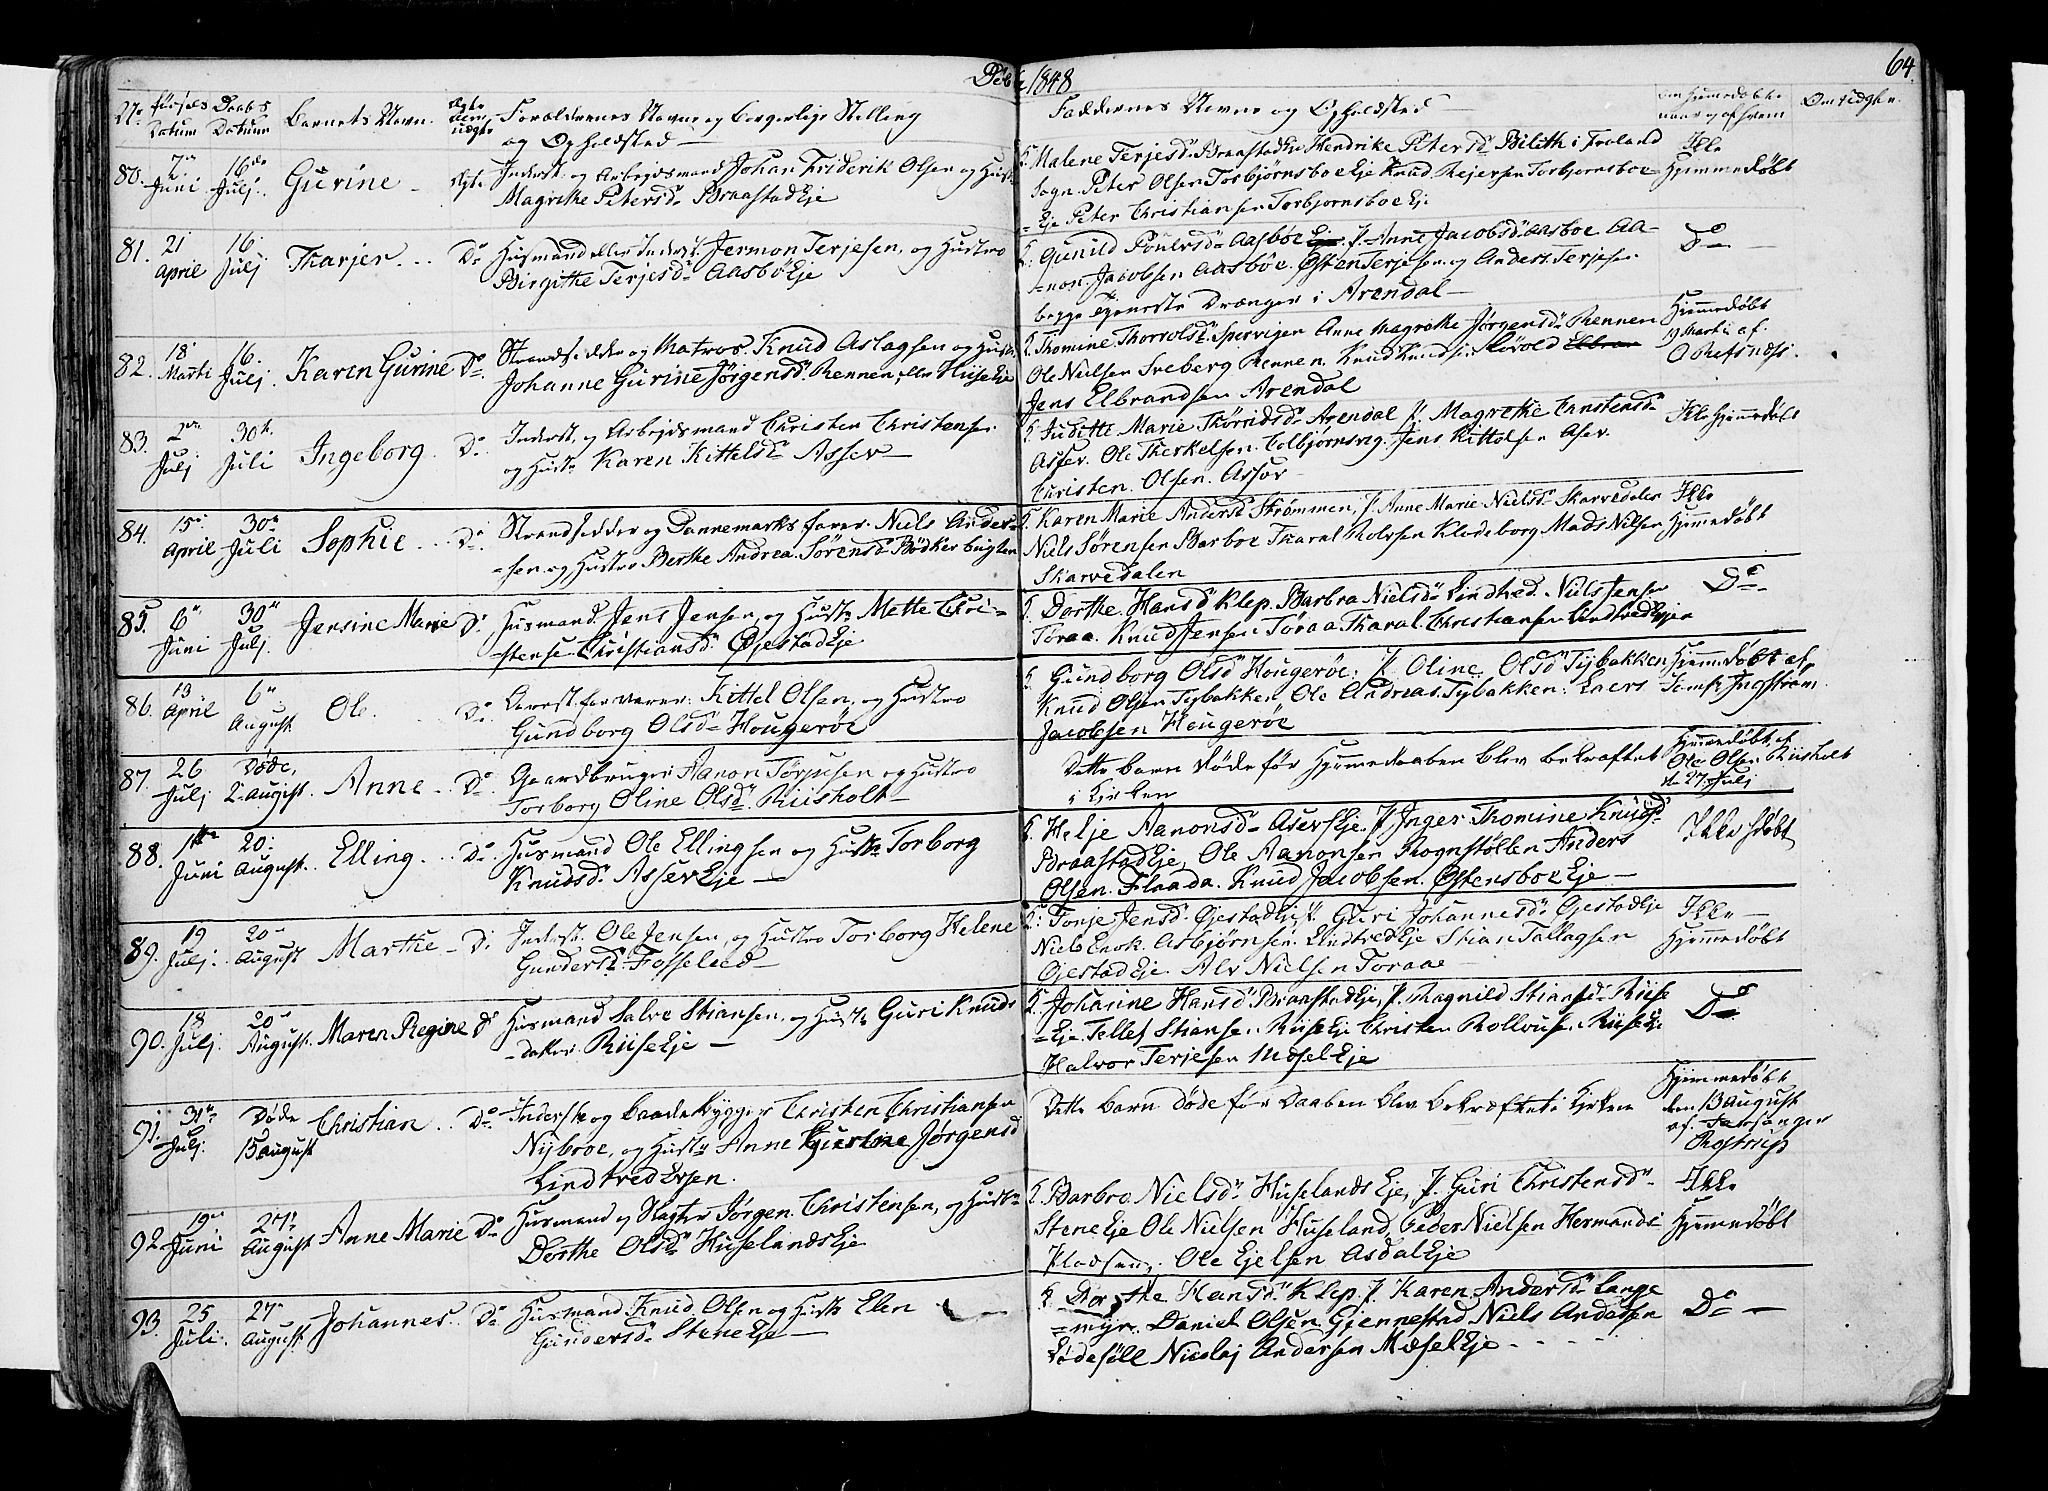 Døbte 1848
64
No Fødsels Datum Daabs Datum Barnets Navn. Ægte eller uægte Forældrenes Navne og borgerlige Stilling og Opholdsted
Faddernes Navne og Opholdsted
80. 7de Juni 16de Julj. Gurine Ægte Inderst og Arbejdsmand Johan Friderik Olsen og Hust.
Magrethe Petersd. Braastad Eje
Malene Terjesd. Braastad Eje Hendrike Petersd. Bilith i Froland
Sogn. Peter Olsen Torbjørnsboe Eje Knud Rejersen Torbjornsboe
Eje Peter Christiansen Torbjornsboe Eje
Ikke
Hjemmedøbt
81. 21 April 16. Julj Tharjer Do Husmand eller Inderst. Jermon Terjesen, og Hustro
Birgithe Terjesd. Aasbö Eje
Gunild Poulsd. Aasböe P. Anne Jacobsd. Aasboe Aa-
non Jacobsen Aasböe. Østen Terjesen og Anders Terjesen
begge tjeneste Drænger i Arendal
Do
82. 18. Marti 16. Julj Karen Gurine Do Strandsidder og Matros. Knud Aslagsen og Hust.
Johanne Gurine Jørgensd. Rennen, eller Hiis Eje
Thomine Thorvolsd. Spervigen Anne Magrethe Jørgensd. Rennen
Ole Nielsen Sreberg Rennen. Knud Knudsen
Jens Elbrandsen Arendal
Hjemmedöbt
19 Marti af
O Refsnæs
83. 2den Julj 30te Juli Ingeborg Do Inderst og Arbejdsmand Christen Christensen
og Hust. Karen Kittelsd. Assev
Juditte Marie Thöridsd. Arendal P. Magrethe Christensd.
Assev. Ole Therkelsen Colbjørnsvig. Jens Kittelsen Asev.
Christen. Olsen. Assev
Ikke Hjemmedøbt
84. 15de April 30te Juli Sophie Do Strandsidder og Dannemarks farer. Niels Ander-
sen og Hustro Berthe Andrea. Sørensd. Bödkerbugten
Karen Marie Andersd. Strømmen, P. Anne Marie Nielsd. Skarvedalen
Niels Sørensen Barboe Tharal Rolvsen Kledeborg Mads Nilsen
Skarvedalen
Ikke
Hjemmedøbt
85. 6te Juni 30te Julj. Jensine Marie Do Husmand. Jens Jensen, og Hust. Mette Chri-
stense Christiansd. Øjestad Eje
Dorthe. Hansd. Klep. Barbra Nielsd. Lindtred. Niels Jensen
Toraa. Knud Jensen Töraa Tharal. Christiansen Lindtved Ejer
Do
86. 13 April 6te August Ole. Do Arrestforvarer. Kittel Olsen, og Hustro
Gundborg Olsd. Hougeröe
Gundborg Olsd. Hougeröe. P. Oline Olsd. Tybakken
Knud Olsen Tybakken Ole Andreas. Tybakken. Laers
Jacobsen Hougeröe
Hjemmedøbt af
87. 26 Julj Døde, 2. August Anne Do Gaardbruger Aanon Torjusen og Hustro
Torborg Oline Olsd. Riisholt
Dette Barn døde før Hjemmedaaben blev bekræftet
i Kirken
Hjemmedøbt af
Ole Olsen Riisholt
d. 27. Julj
88. 1ste Juni 20. August. Elling Do Husmand Ole Ellingsen og Hust. Torborg
Knudsd. Assev Eje
Helje Aanonsd. Asev Eje. P. Inger Thomine Knudsd.
Braastad Eje, Ole Aanonsen Rognstölen Anders
Olsen. Flaada. Knud Jacobsen. Østensboe Eje
Ikke døbt
89. 19 Julj. 20de August Marthe Do Inderst. Ole Jensen, og Hustro Torborg Helene
Gundersd. Fosseled
Tonje Jensd. Øjestad Eje P. Guri Johannesd. Øjestad Eje
Niels Enok. Asbjørnsen. Lindtred Eje Stian Tallagsen
Øjestad Eje. Alv Nielsen Toraae
Ikke
Hjemmedøbt
90. 18 Julj. 20de August. Maren Regine Do Husmand Salve Stiansen, og Hust. Guri Knuds-
datter. Riis Eje
Johanne Hansd. Braastad Eje, P. Ragnild Stiansd. Riis
Eje. Tellef Stiansen Riis Eje Christen Rollvusen Riis Eje
Halvor Terjesen Mæsel Eje
Do
91. 31te Julj. Døde 15 August Christian Do Inderst og Baadebygger Christen Christiansen
Nyboe, og Hust. Anne Jørgensd.
Lindtved
Dette Barn døde før Daaben blev bekræftet i Kirken
Hjemmedöbt
den 13 August
af
Rostrup
92. 19de Juni 27de August Anne Marie Do Husmand og Slagter Jørgen. Christensen, og Hust.
Dorthe Olsd. Huselands Eje
Barbro Nielsd. Huselands Eje, P. Guri Christensd.
Stene Eje Ole Nielsen Huseland, Peder Nielsen Hermands
Pladsen. Ole Ejelsen Asdal Eje
Ikke
Hjemmedøbt
93. 25 Juli. 27de August. Johannes. Do Husmand Knud Olsen og Hust. Elen
Gundersd. Stene Eje
Dorthe Hansd. Klep. P. Karen. Andersd. Lange
myr. Daniel Olsen Gjennestad Niels Andersen
Nicolaj Andersen Mæsel Eje
Do